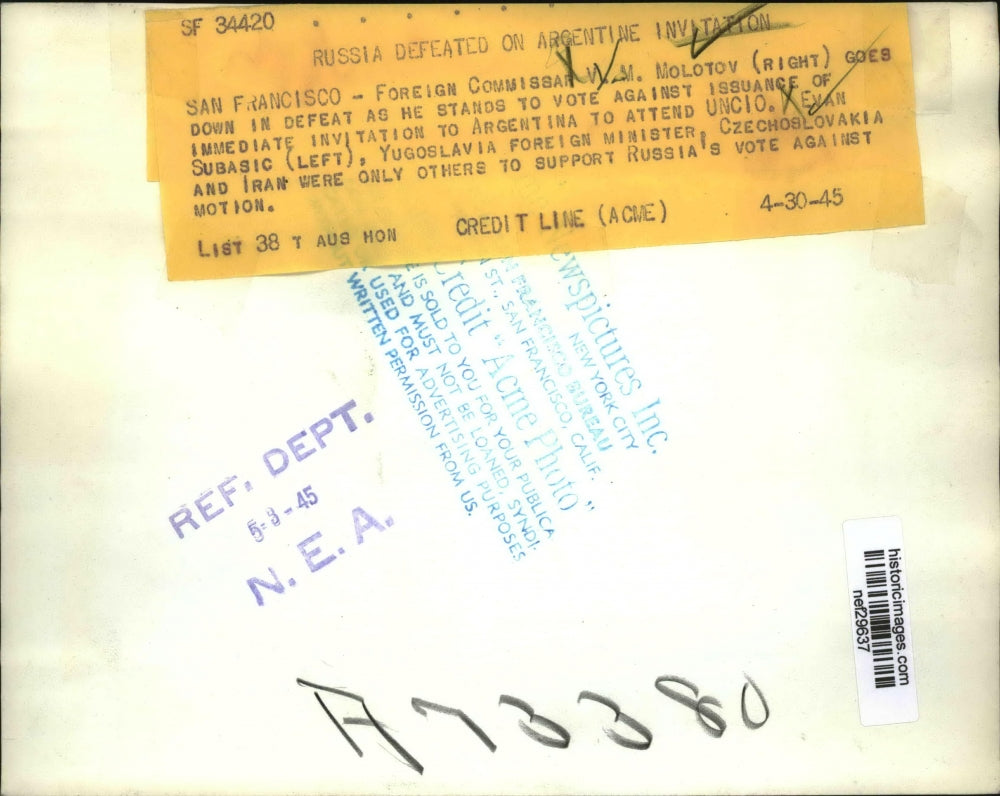 SF 34420
RUSSIA DEFEATED ON ARGENTINE INVITATION
SAN FRANCISCO - FOREIGN COMMISSAR V. M. MOLOTOV (RIGHT) GOES
DOWN IN DEFEAT AS HE STANDS TO VOTE AGAINST ISSUANCE OF
IMMEDIATE INVITATION TO ARGENTINA TO ATTEND UNCIO. EVAN
SUBASIC (LEFT), YUGOSLAVIA FOREIGN MINISTER, CZECHOSLOVAKIA
AND IRAN WERE ONLY OTHERS TO SUPPORT RUSSIA'S VOTE AGAINST
MOTION.
LIST 38 T AUS HON
CREDIT LINE (ACME)
4-30-45
ewspictures Inc.
NEW YORK CITY
FRANCISCO BUREAU
ST., SAN FRANCISCO, CALIF.
Credit "Acme Photo"
IS SOLD TO YOU FOR YOUR PUBLICA
AND MUST NOT BE LOANED, SYNDI-
USED FOR ADVERTISING PURPOSES
WRITTEN PERMISSION FROM US.
REF. DEPT.
5-3-45
N. E. A.
historicimages.com
nef29637
A73380